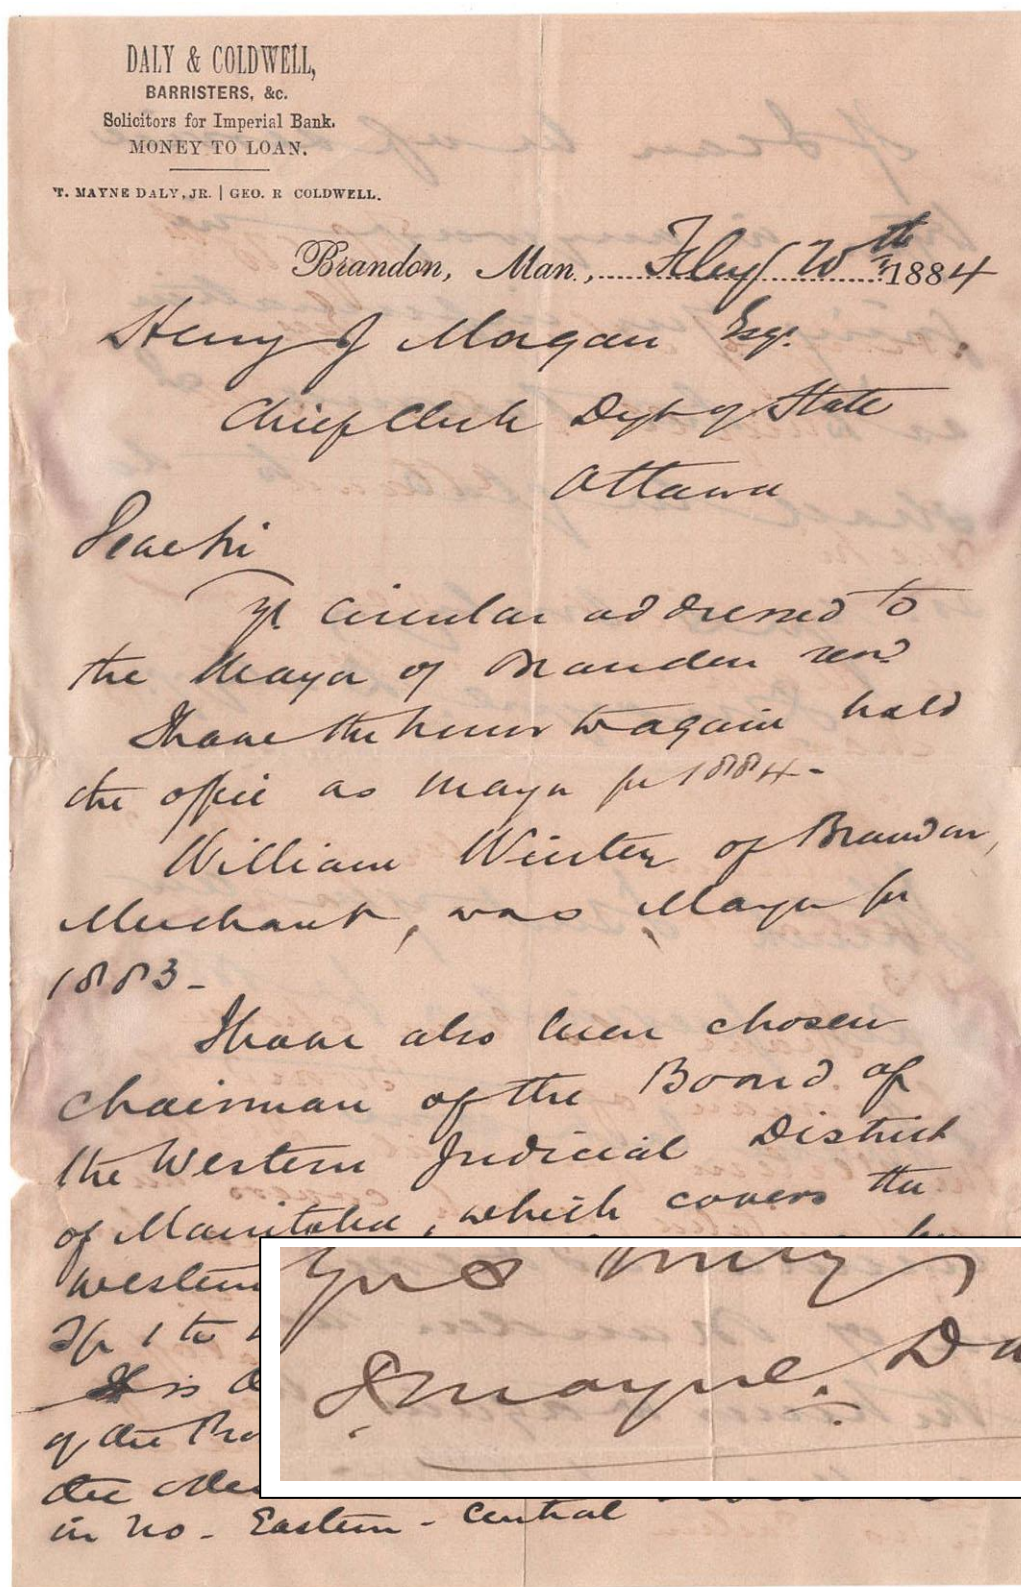 DALY & COLDWELL,
BARRISTERS, &c.
Solicitors for Imperial Bank.
MONEY TO LOAN.
T. MAYNE DALY, JR. | GEO. R COLDWELL.
Brandon, Man., Feby 20th 1884
Henry J Morgan Esqr.
Chief Clerk Dept of State
Ottawa
Dear Sir
Yr. Circular addressed to
the Mayor of Brandon recd
I have the honor to again hold
the office as Mayor for 1884-
William Winter of Brandon,
Merchant, was Mayor for
1883-
I have also been chosen
Chairman of the Board of
the Western Judicial District
of Manitoba, which covers the
western
Tp 1 to
It is
of the
the
in no - Eastern - Central
Yrs truly
T. Mayne Da